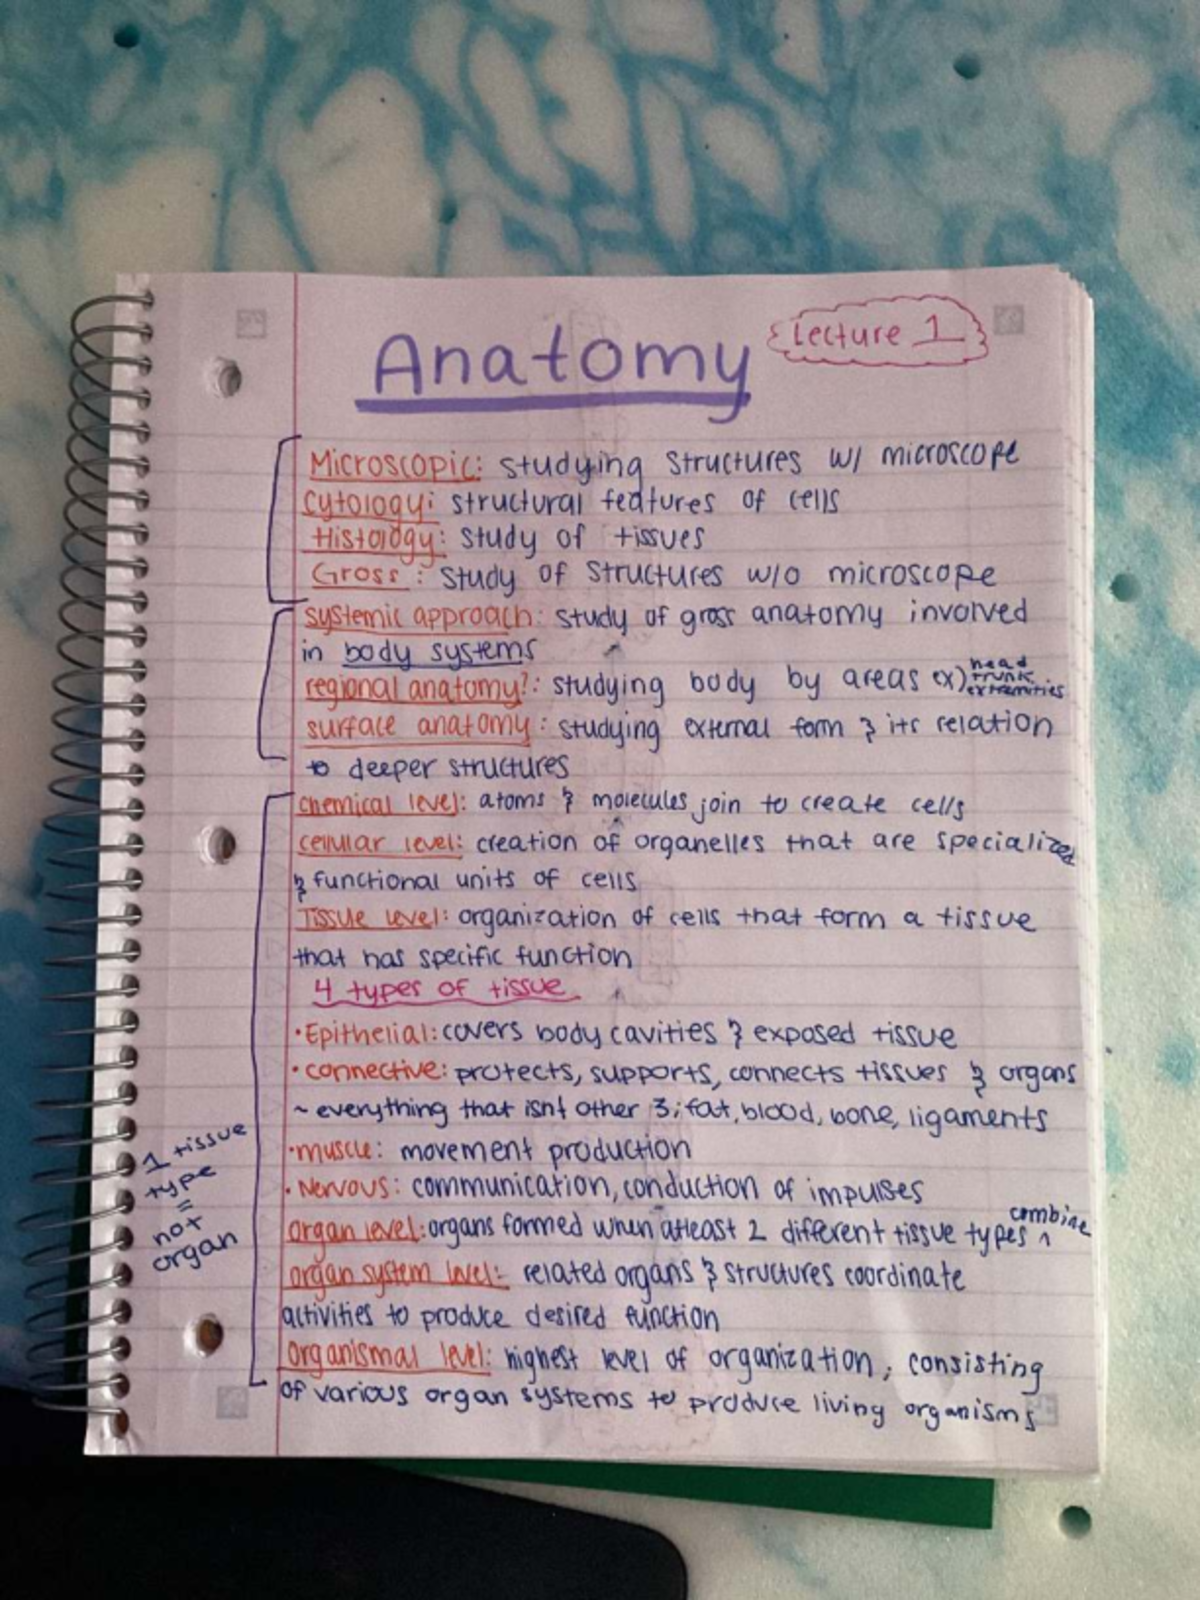 Anatomy
Lecture 1
Microscopic: studying structures w/ microscope
Cytology: structural features of cells
Histology: study of tissues
Gross: study of structures w/o microscope
systemic approach: study of gross anatomy involved
in body systems
regional anatomy?: studying body by areas ex) head trunk extremities
surface anatomy: studying external form & its relation
to deeper structures
chemical level: atoms & molecules join to create cells
cellular level: creation of organelles that are specialized
& functional units of cells
Tissue level: organization of cells that form a tissue
that has specific function
4 types of tissue
• Epithelial: covers body cavities & exposed tissue
• connective: protects, supports, connects tissues & organs
~ everything that isnt other 3; fat, blood, bone, ligaments
• muscle: movement production
• Nervous: communication, conduction of impulses
organ level: organs formed when atleast 2 different tissue types ^ combine
organ system level: related organs & structures coordinate
activities to produce desired function
Organismal level: highest level of organization; consisting
of various organ systems to produce living organisms
1 tissue
type
=
not
organ